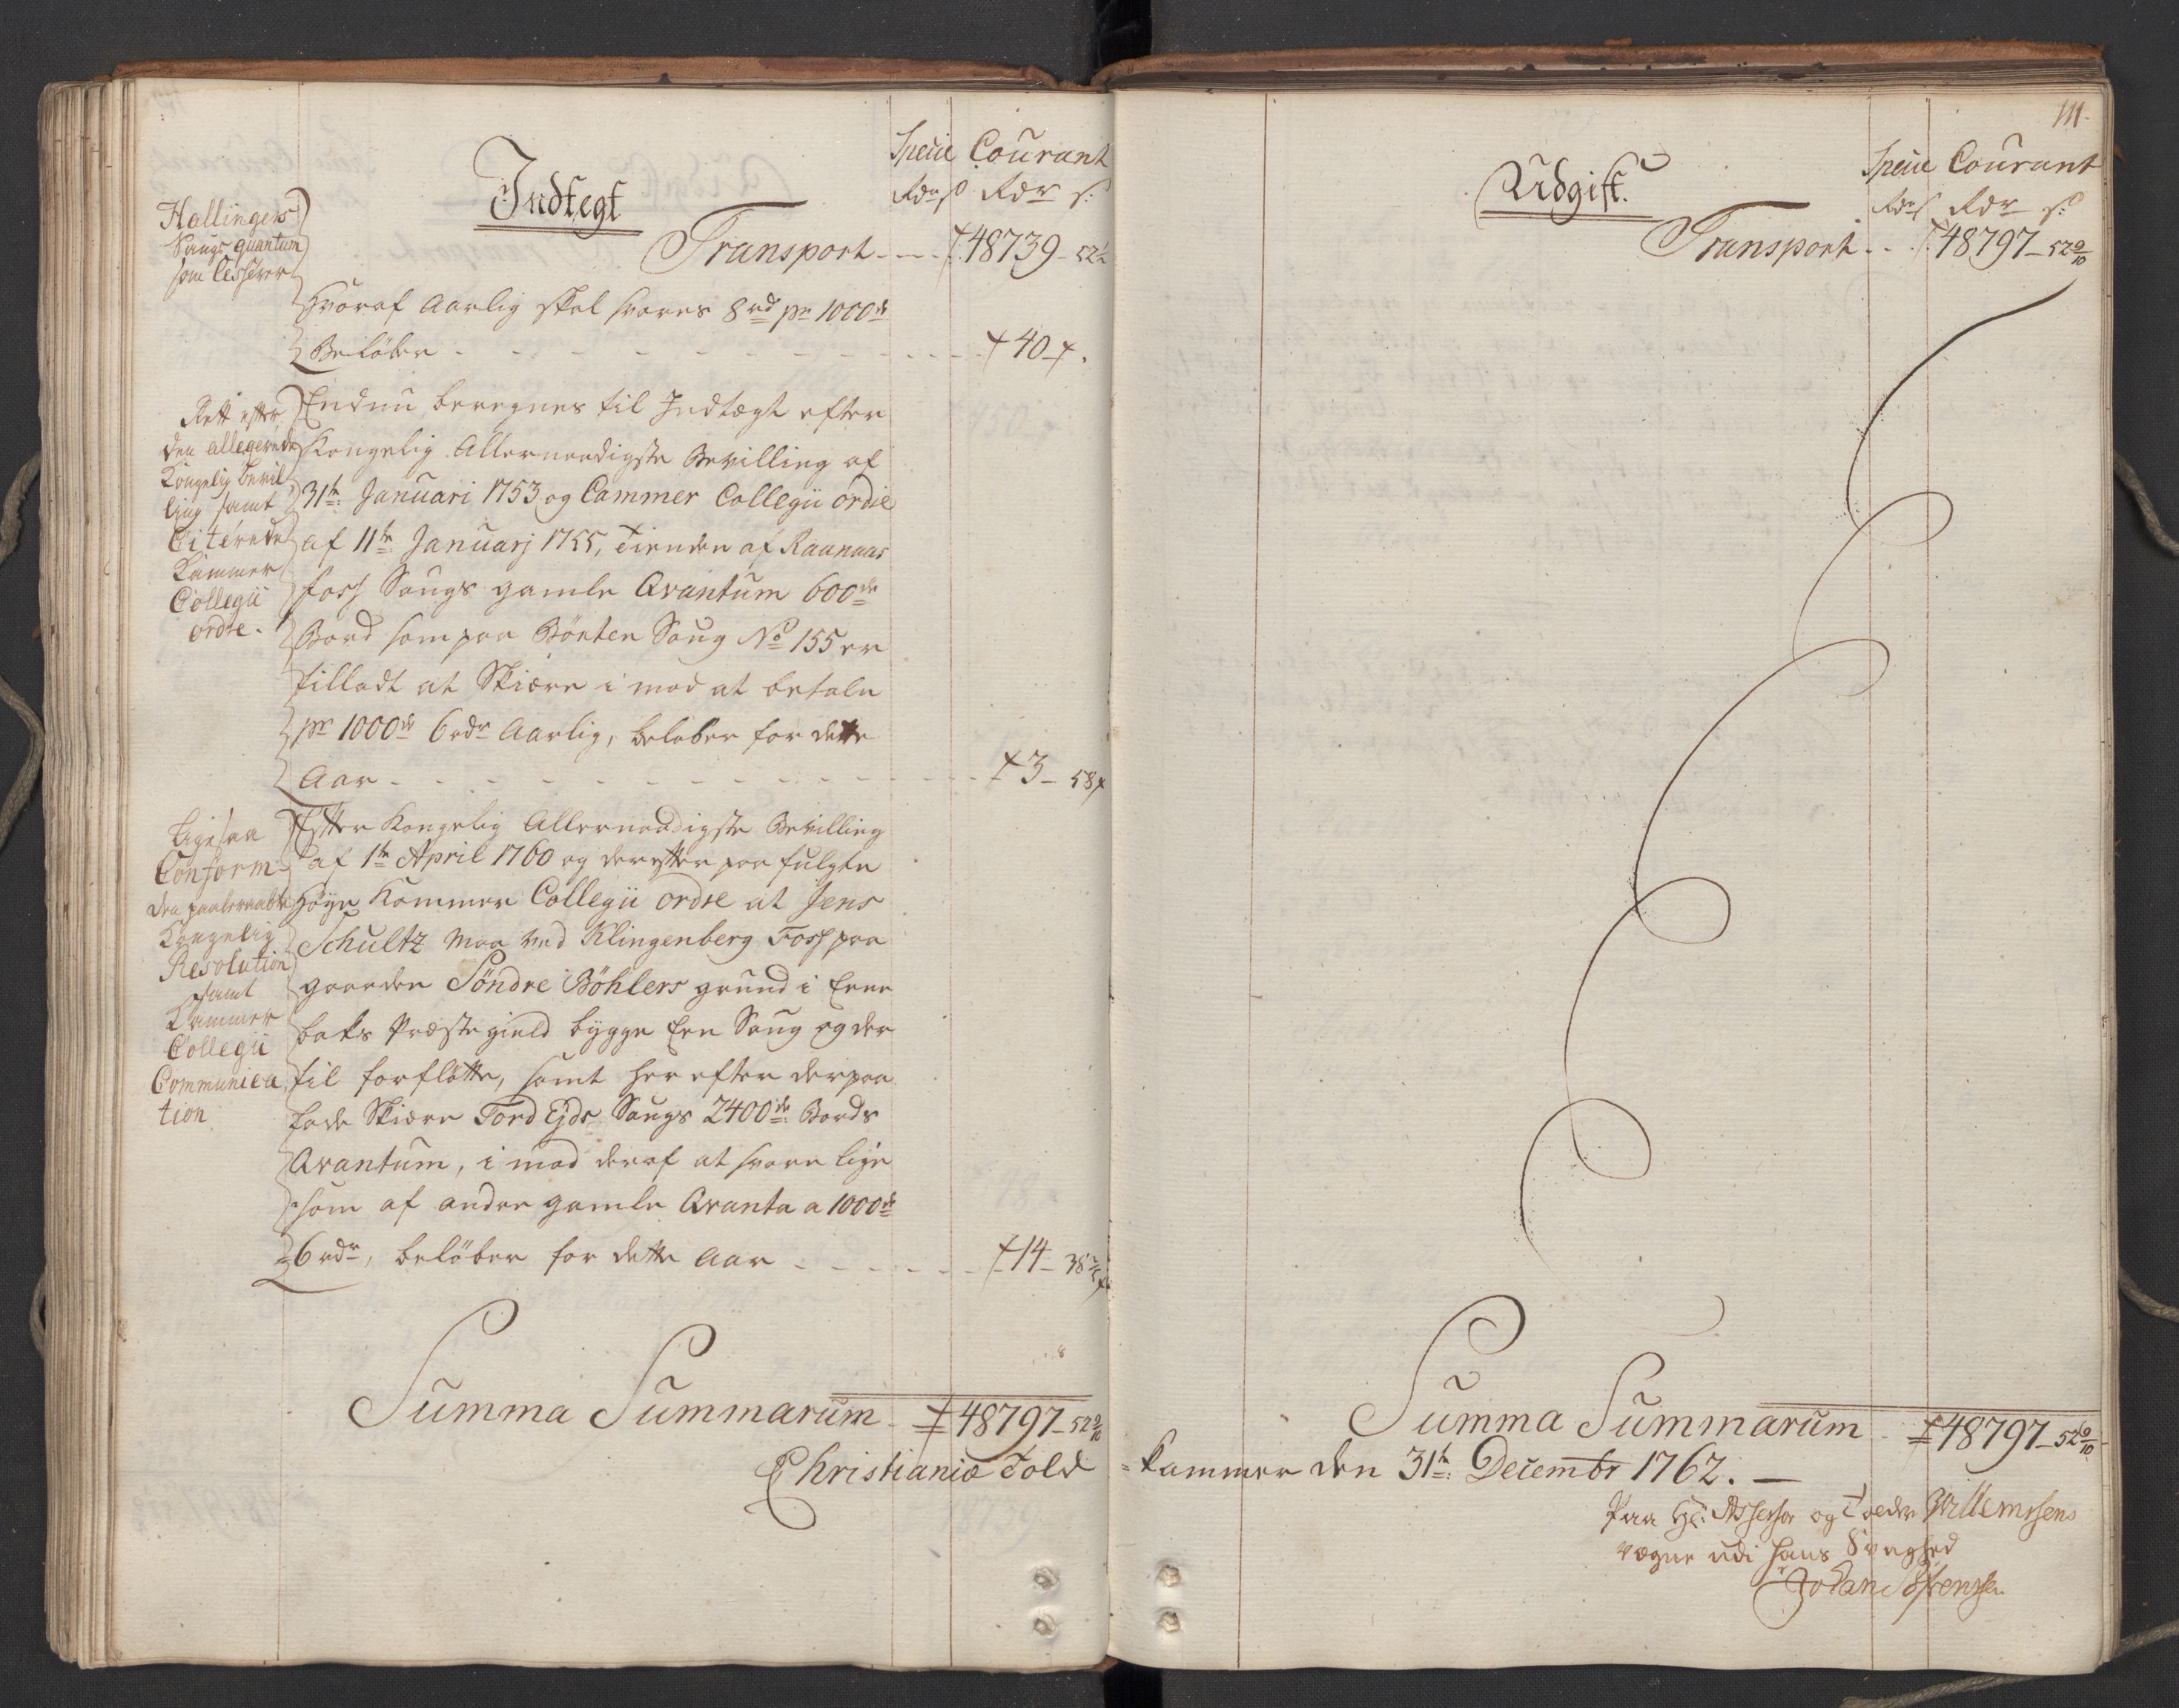 Indtegt
Specie Courant
Rdr s Rdr s:
Transport - - - 48739 - 52½
Hallingers
Saugs quantum
som Cesserer
hvoraf Aarlig skal svares 8 rd pr 1000de
Beløber - - - 40 -
Rett efter
den allegerede
Kongelig bevil
ling samt
Citerede
Kammer
Collegii
ordre.
Endnu beregnes til Indtægt efter
Kongelig Allernaadigste Bevilling af
31te Januari 1753 og Cammer Collegii ordre
af 11te Januarj 1755, Tienden af Raanaas
foss Saugs gamle Qvantum 600de
Bord som paa Bönten Saug No 155 er
tilladt at Skiære i mod at betale
pr 1000de 6 rdr Aarlig, beløber for dette
Aar - - - 3 - 58
Ligesaa
Conform
den paaberaabte
Kongelig
Resolution
samt
Kammer
Collegii
Communica
tion
Efter Kongelig Allernaadigste Bevilling
af 1te April 1760 og derefter paa fulgte
Høye Kammer Collegii ordre at Jens
Schultz maa ved Klingenberg Foss paa
gaarden Söndre Böhlers grund i Ene
baks Præstegield bygge een Saug og der
til forfløtte, samt her efter derpaa
lade Skiære Tord Ejds Saugs 2400de Bords
Qvantum, i mod deraf at svare lige
som af andre gamle Qvanta a 1000de
6 rdr, beløber for dette Aar - - - 14 - 38⅖
Summa Summarum - 48797 - 52 9/10
Christianiæ Told
111.
Udgift.
Specie Courant
Rdr s Rdr s:
Transport - - 48797 - 52 9/10
Summa Summarum - 48797 - 52 9/10
= kammer den 31te Decembr 1762. —
Paa Hr: Assessor og Tolder Willemsens
vegne udi hans Svaghed
Johan Sörenssen